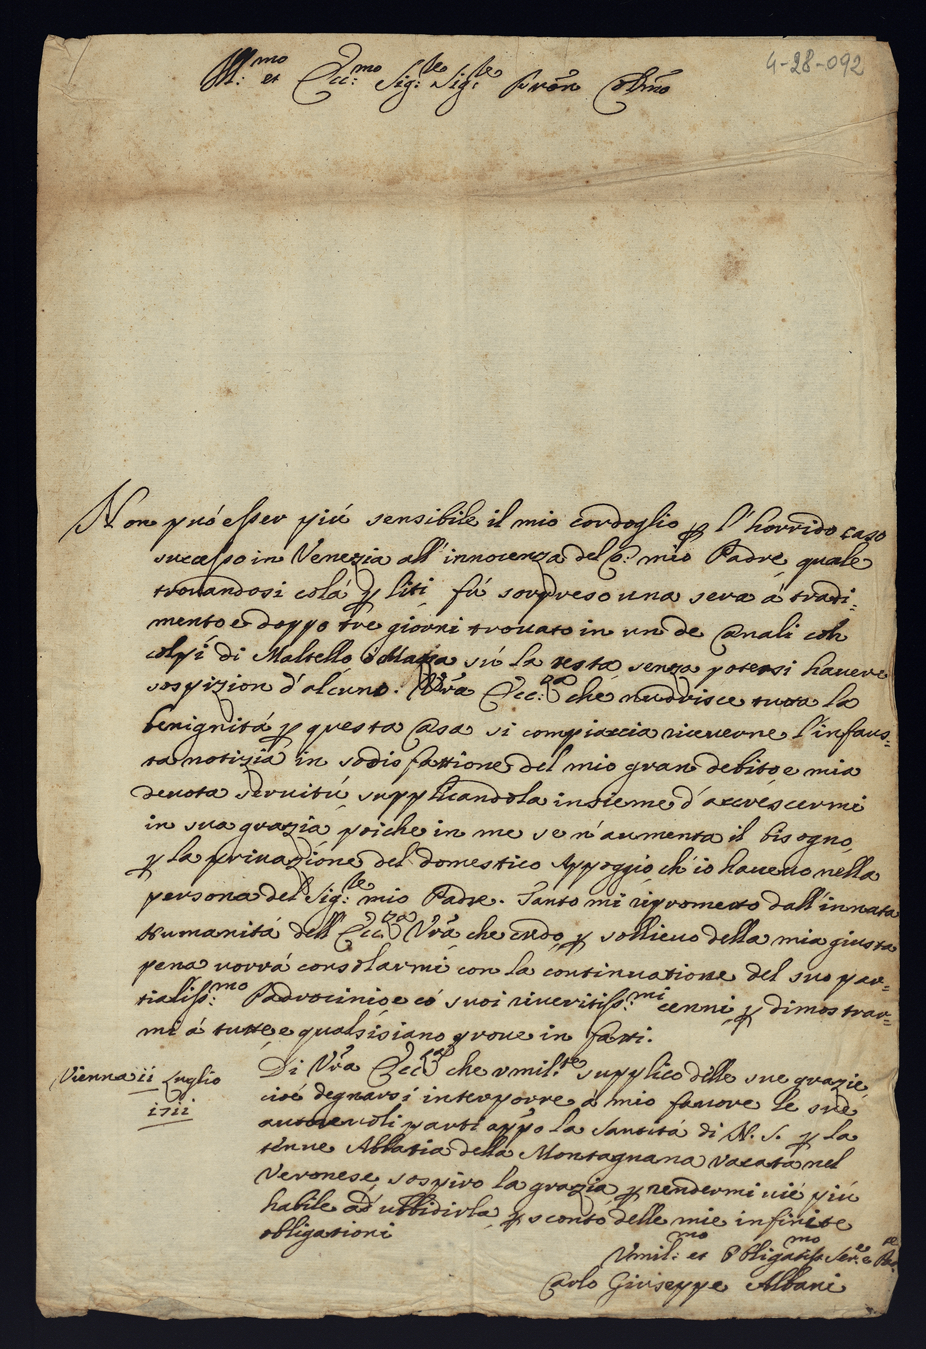 4-28-092
Ill:mo et Ecc:mo Sig:re Sig:re Pron Colmo
Non può esser più sensibile il mio cordoglio p l'horrido caso
successo in Venezia all'innocenza del q: mio Padre, quale
trouandosi colà p liti fù sorpreso una sera à tradi=
mento e doppo tre giorni trouato in un de Canali con
colpi di Maltello ò Mazza sù la testa senza potersi hauere
sospizion d'alcuno. Vra Ecc:za che nudrisce tutta la
benignità p questa Casa si compiaccia riceuerne l'infaus=
ta notizia in sodisfattione del mio gran debito e mia
deuota seruitù supplicandola insieme d'accrescermi
in sua grazia poiche in me se n'aumenta il bisogno
p la priuazione del domestico Appoggio ch'io haueuo nella
persona del Sig:re mio Padre. Tanto mi riprometto dall'innata
Humanità dell'Ecc:za Vra che credo p sollieuo della mia giusta
pena vorrà consolarmi con la continuatione del suo par=
tialiss:mo Padrocinio e có suoi riueritiss:mi cenni p dimostrar=
mi à tutte e qualsisiano proue in fatti.
Di Vra Ecc:za che vmil:te supplico delle sue grazie
Vienna ii Luglio
1711
cioè degnarsi interporre à mio fauore le sue
autoreuoli parti appo la Santità di N. S. p la
tenue Abbatia della Montagnana vacata nel
Veronese, sospiro la grazia p rendermi vié più
habile ad ubbidirla, p sconto delle mie infinite
obligationi
Vmil:mo et Obligatiss:mo Ser:e
Carlo Giuseppe Albani